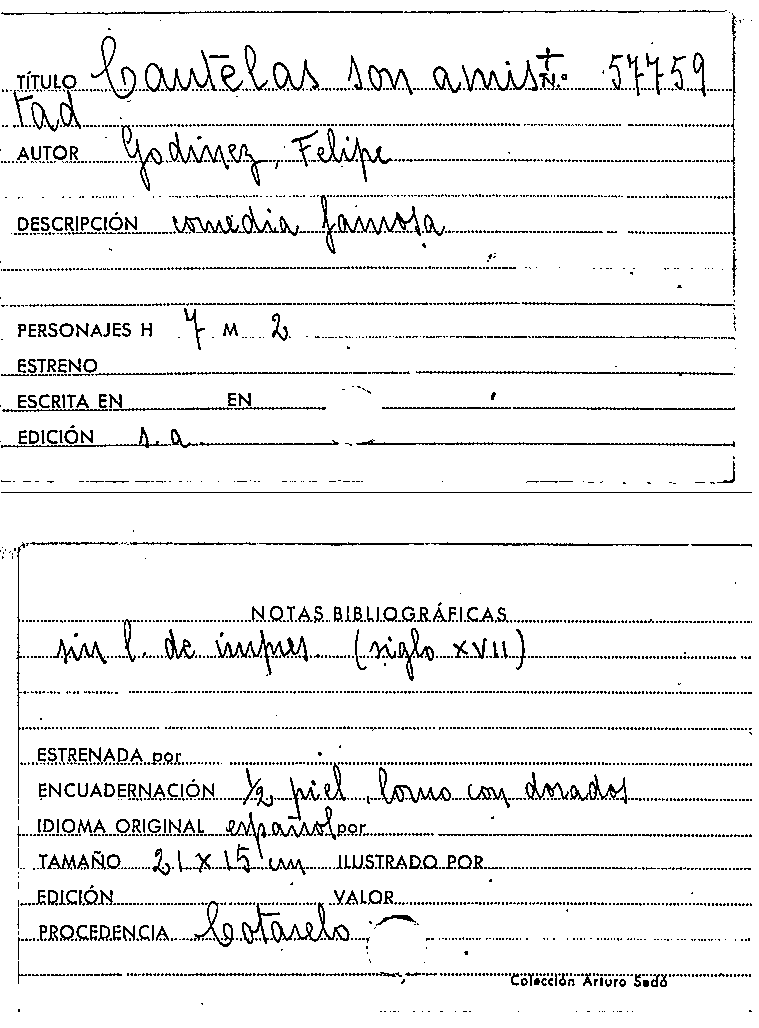 TÍTULO Cautelas son amis N.º 57759
tad
AUTOR Godinez, Felipe
DESCRIPCIÓN comedia famosa
PERSONAJES H 7 M 2
ESTRENO
ESCRITA EN EN
EDICIÓN s.a.
NOTAS BIBLIOGRÁFICAS
sin l. de impres. (siglo XVII)
ESTRENADA por
ENCUADERNACIÓN 1/2 piel, lomo con dorados
IDIOMA ORIGINAL español por
TAMAÑO 21 x 15 cm ILUSTRADO POR
EDICIÓN VALOR
PROCEDENCIA Cotarelo
Colección Arturo Sedó